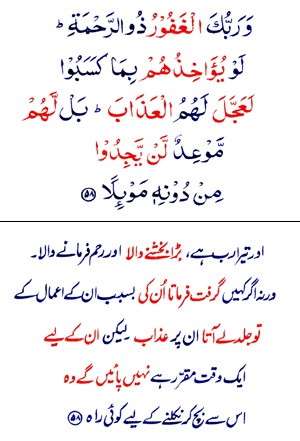 وَرَبُّكَ الْغَفُوْرُ ذُوالرَّحْمَةِ ؕ
لَوْ يُؤَاخِذُهُمْ بِمَا كَسَبُوْا
لَعَجَّلَ لَهُمُ الْعَذَابَ ؕ بَلْ لَّهُمْ
مَّوْعِدٌ لَّنْ يَّجِدُوْا
مِنْ دُوْنِهٖ مَوْىِٕلًا ﴿۵۸﴾
اور تیرا رب ہے، بڑا بخشنے والا اور رحم فرمانے والا۔
ورنہ اگر کہیں گرفت فرماتا اُن کی بسبب ان کے اعمال کے
تو جلد لے آتا ان پر عذاب لیکن ان کے لیے
ایک وقت مقرّر ہے نہیں پائیں گے وہ
اس سے بچ کر نکلنے کے لیے کوئی راہ ﴿۵۸﴾